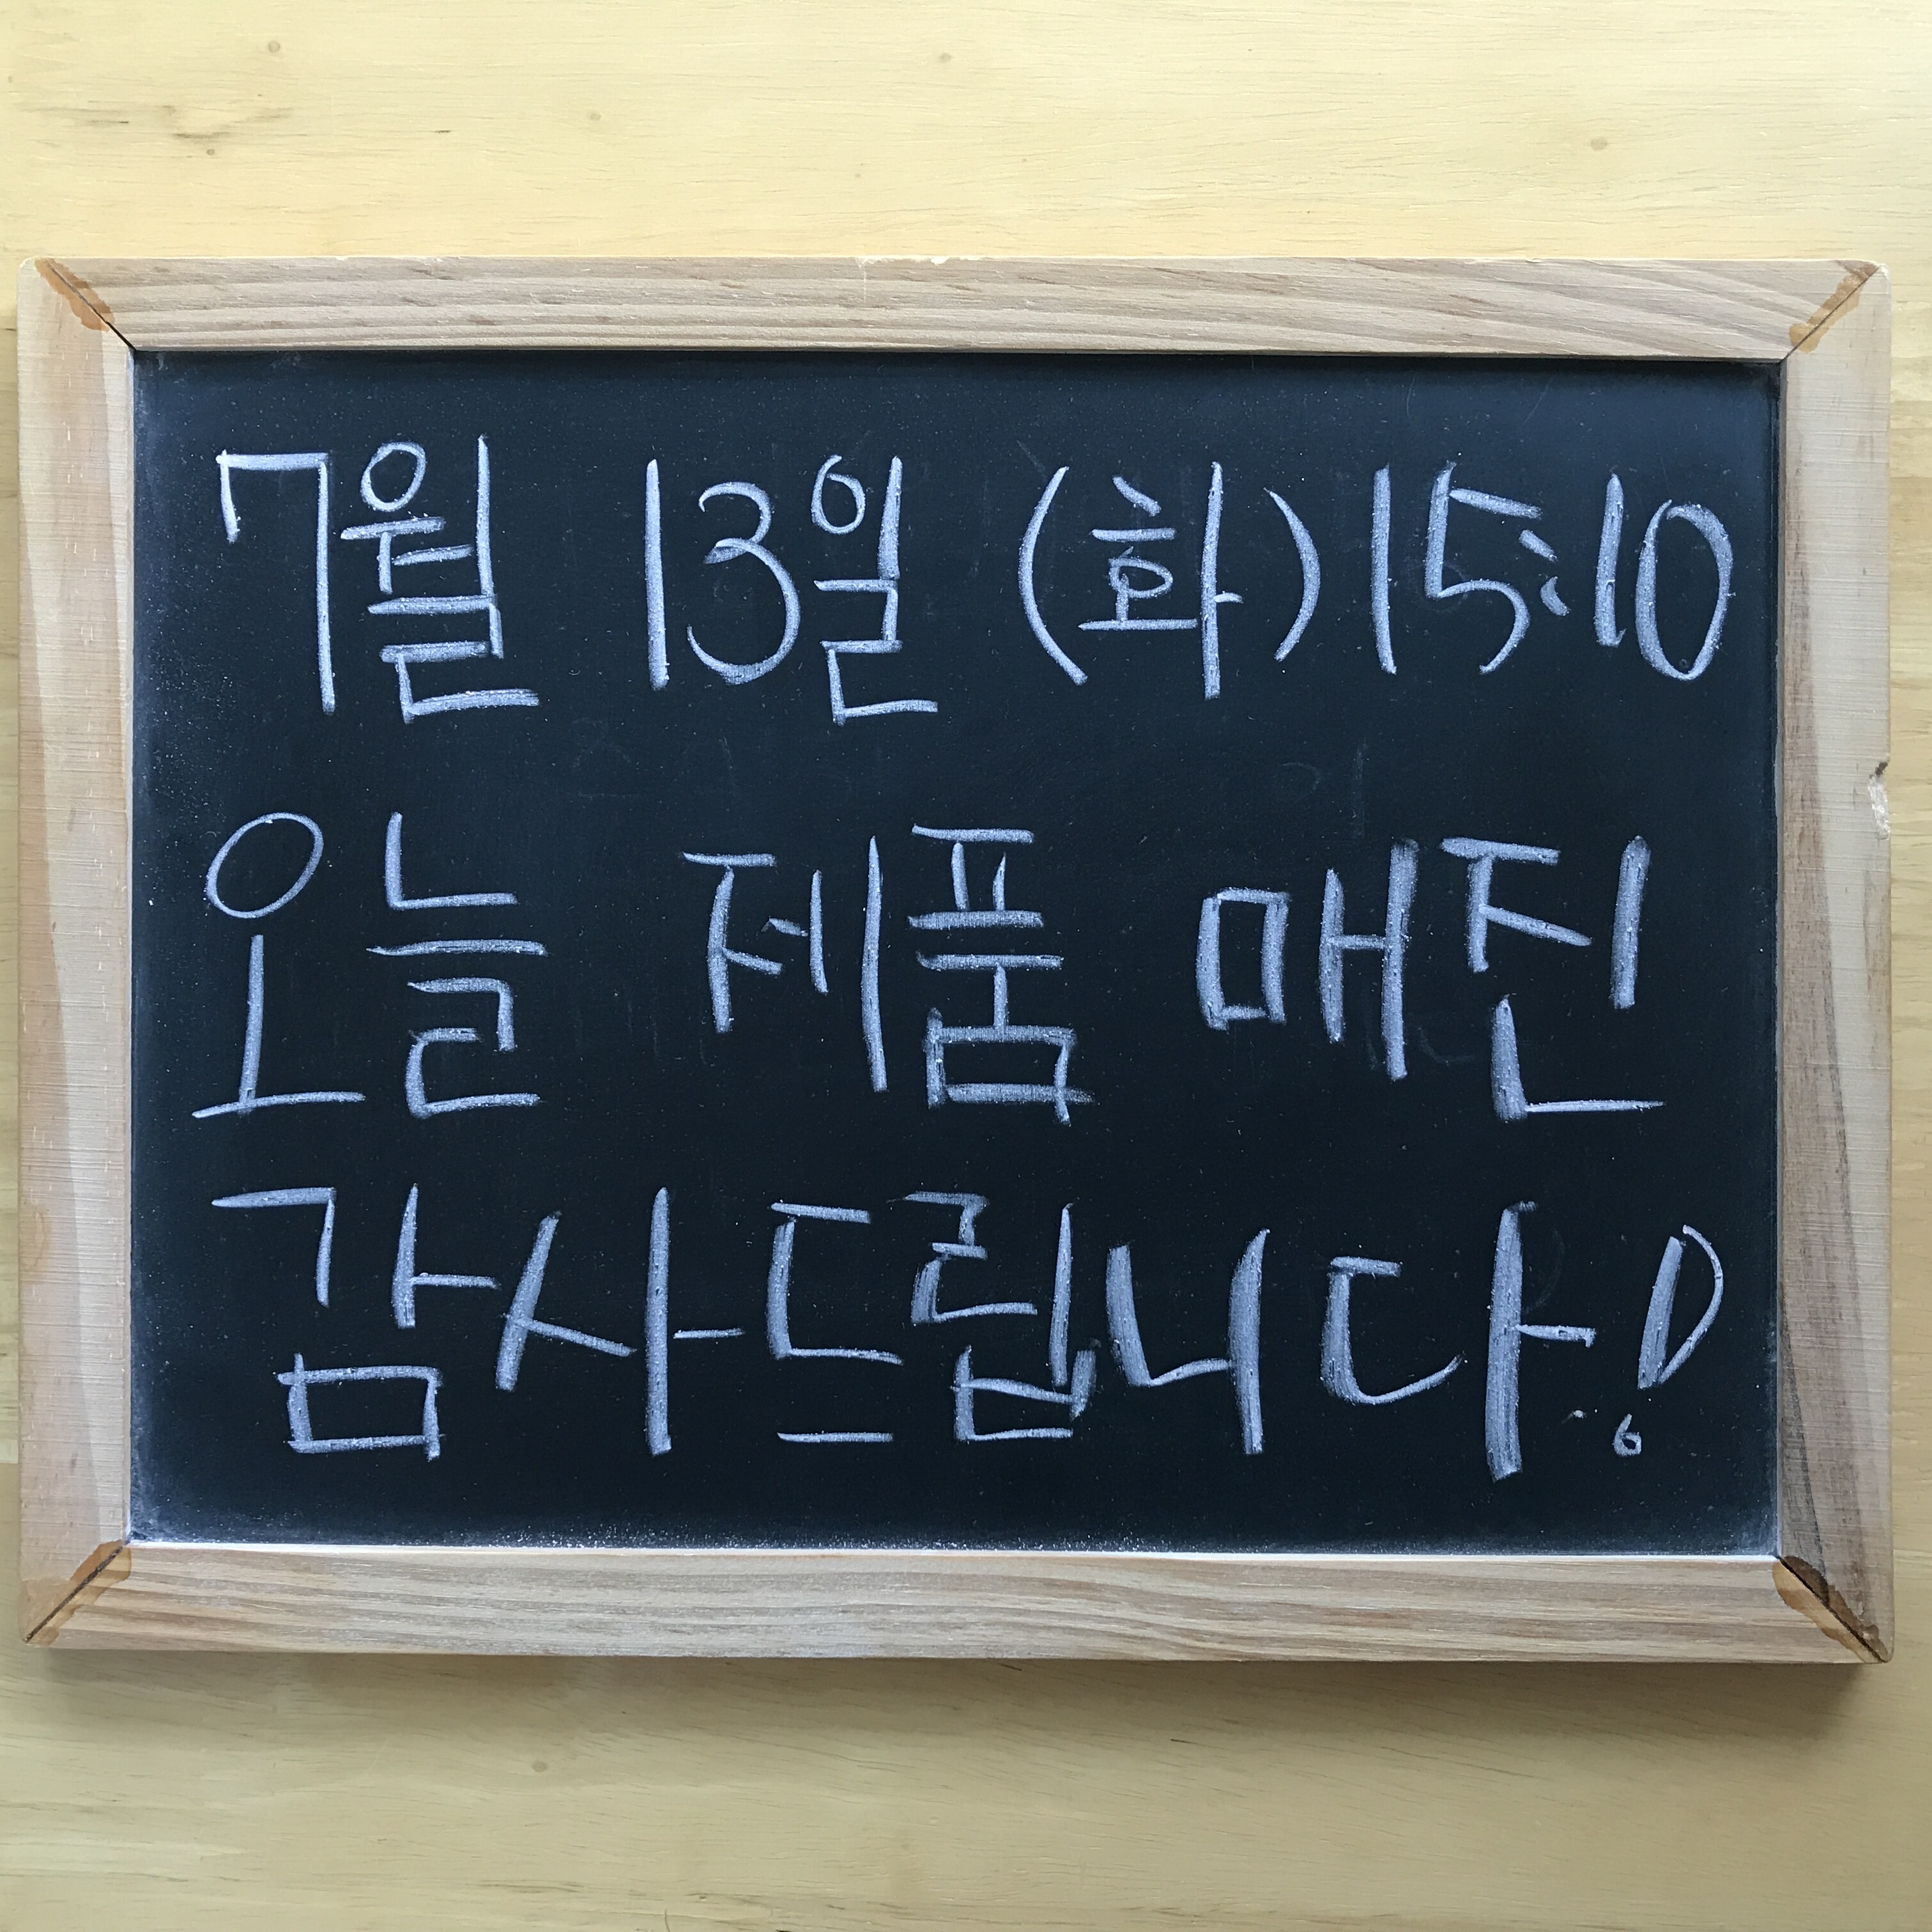 7월 13일 (화) 15:10
오늘 제품 매진
감사드립니다!